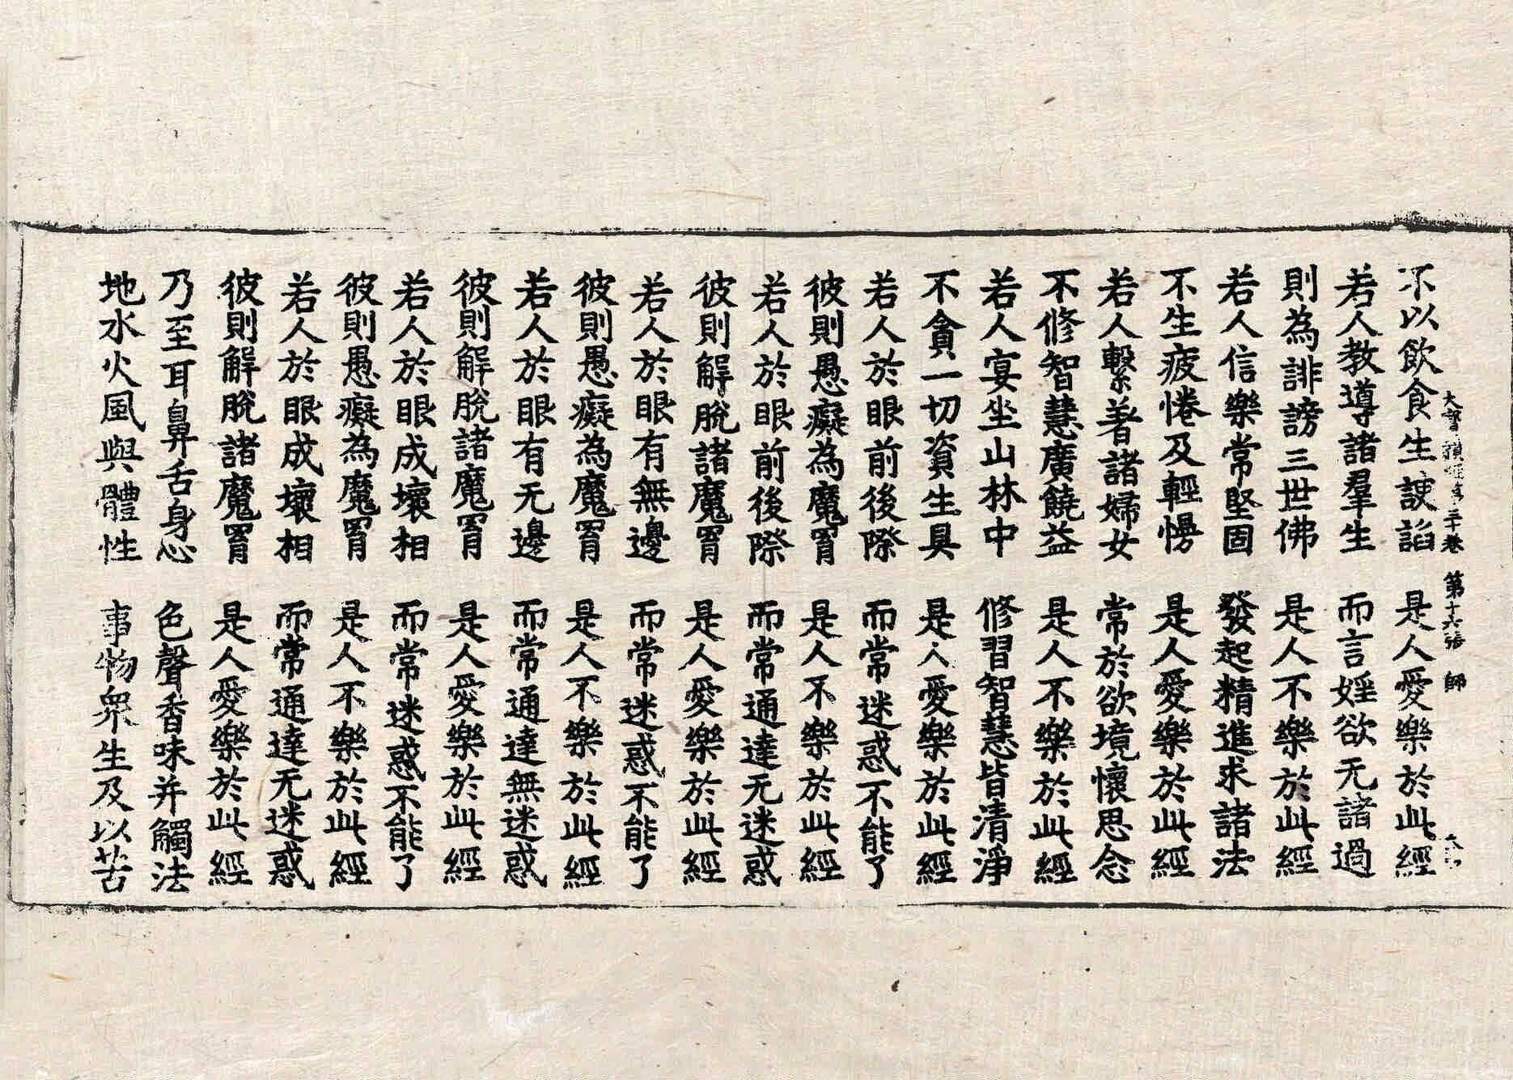 大寶積經 三十卷 第十六張 師
不以飲食生諛諂 是人愛樂於此經
若人教導諸羣生 而言婬欲无諸過
則為誹謗三世佛 是人不樂於此經
若人信樂常堅固 發起精進求諸法
不生疲惓及輕慢 是人愛樂於此經
若人繫著諸婦女 常於欲境懷思念
不修智慧廣饒益 是人不樂於此經
若人宴坐山林中 修習智慧皆清淨
不貪一切資生具 是人愛樂於此經
若人於眼前後際 而常迷惑不能了
彼則愚癡為魔罥 是人不樂於此經
若人於眼前後際 而常通達无迷惑
彼則解脫諸魔罥 是人愛樂於此經
若人於眼有無邊 而常迷惑不能了
彼則愚癡為魔罥 是人不樂於此經
若人於眼有无邊 而常通達無迷惑
彼則解脫諸魔罥 是人愛樂於此經
若人於眼成壞相 而常迷惑不能了
彼則愚癡為魔罥 是人不樂於此經
若人於眼成壞相 而常通達无迷惑
彼則解脫諸魔罥 是人愛樂於此經
乃至耳鼻舌身心 色聲香味并觸法
地水火風與體性 事物衆生及以苦